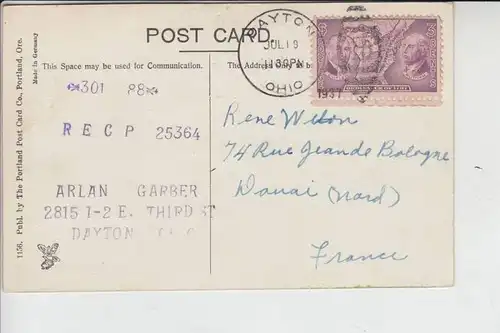 POST CARD.
This Space may be used for Communication.
The Address Only
301 88
RECP 25364
ARLAN GARBER
2815 1-2 E. THIRD ST
DAYTON
1156. Publ. by The Portland Post Card Co. Portland, Ore.
Made in Germany
DAYTON
JUL 19
11 30 PM
1937
OHIO
Rene
74 Rue Grande Bologne
Douai (Nord)
France